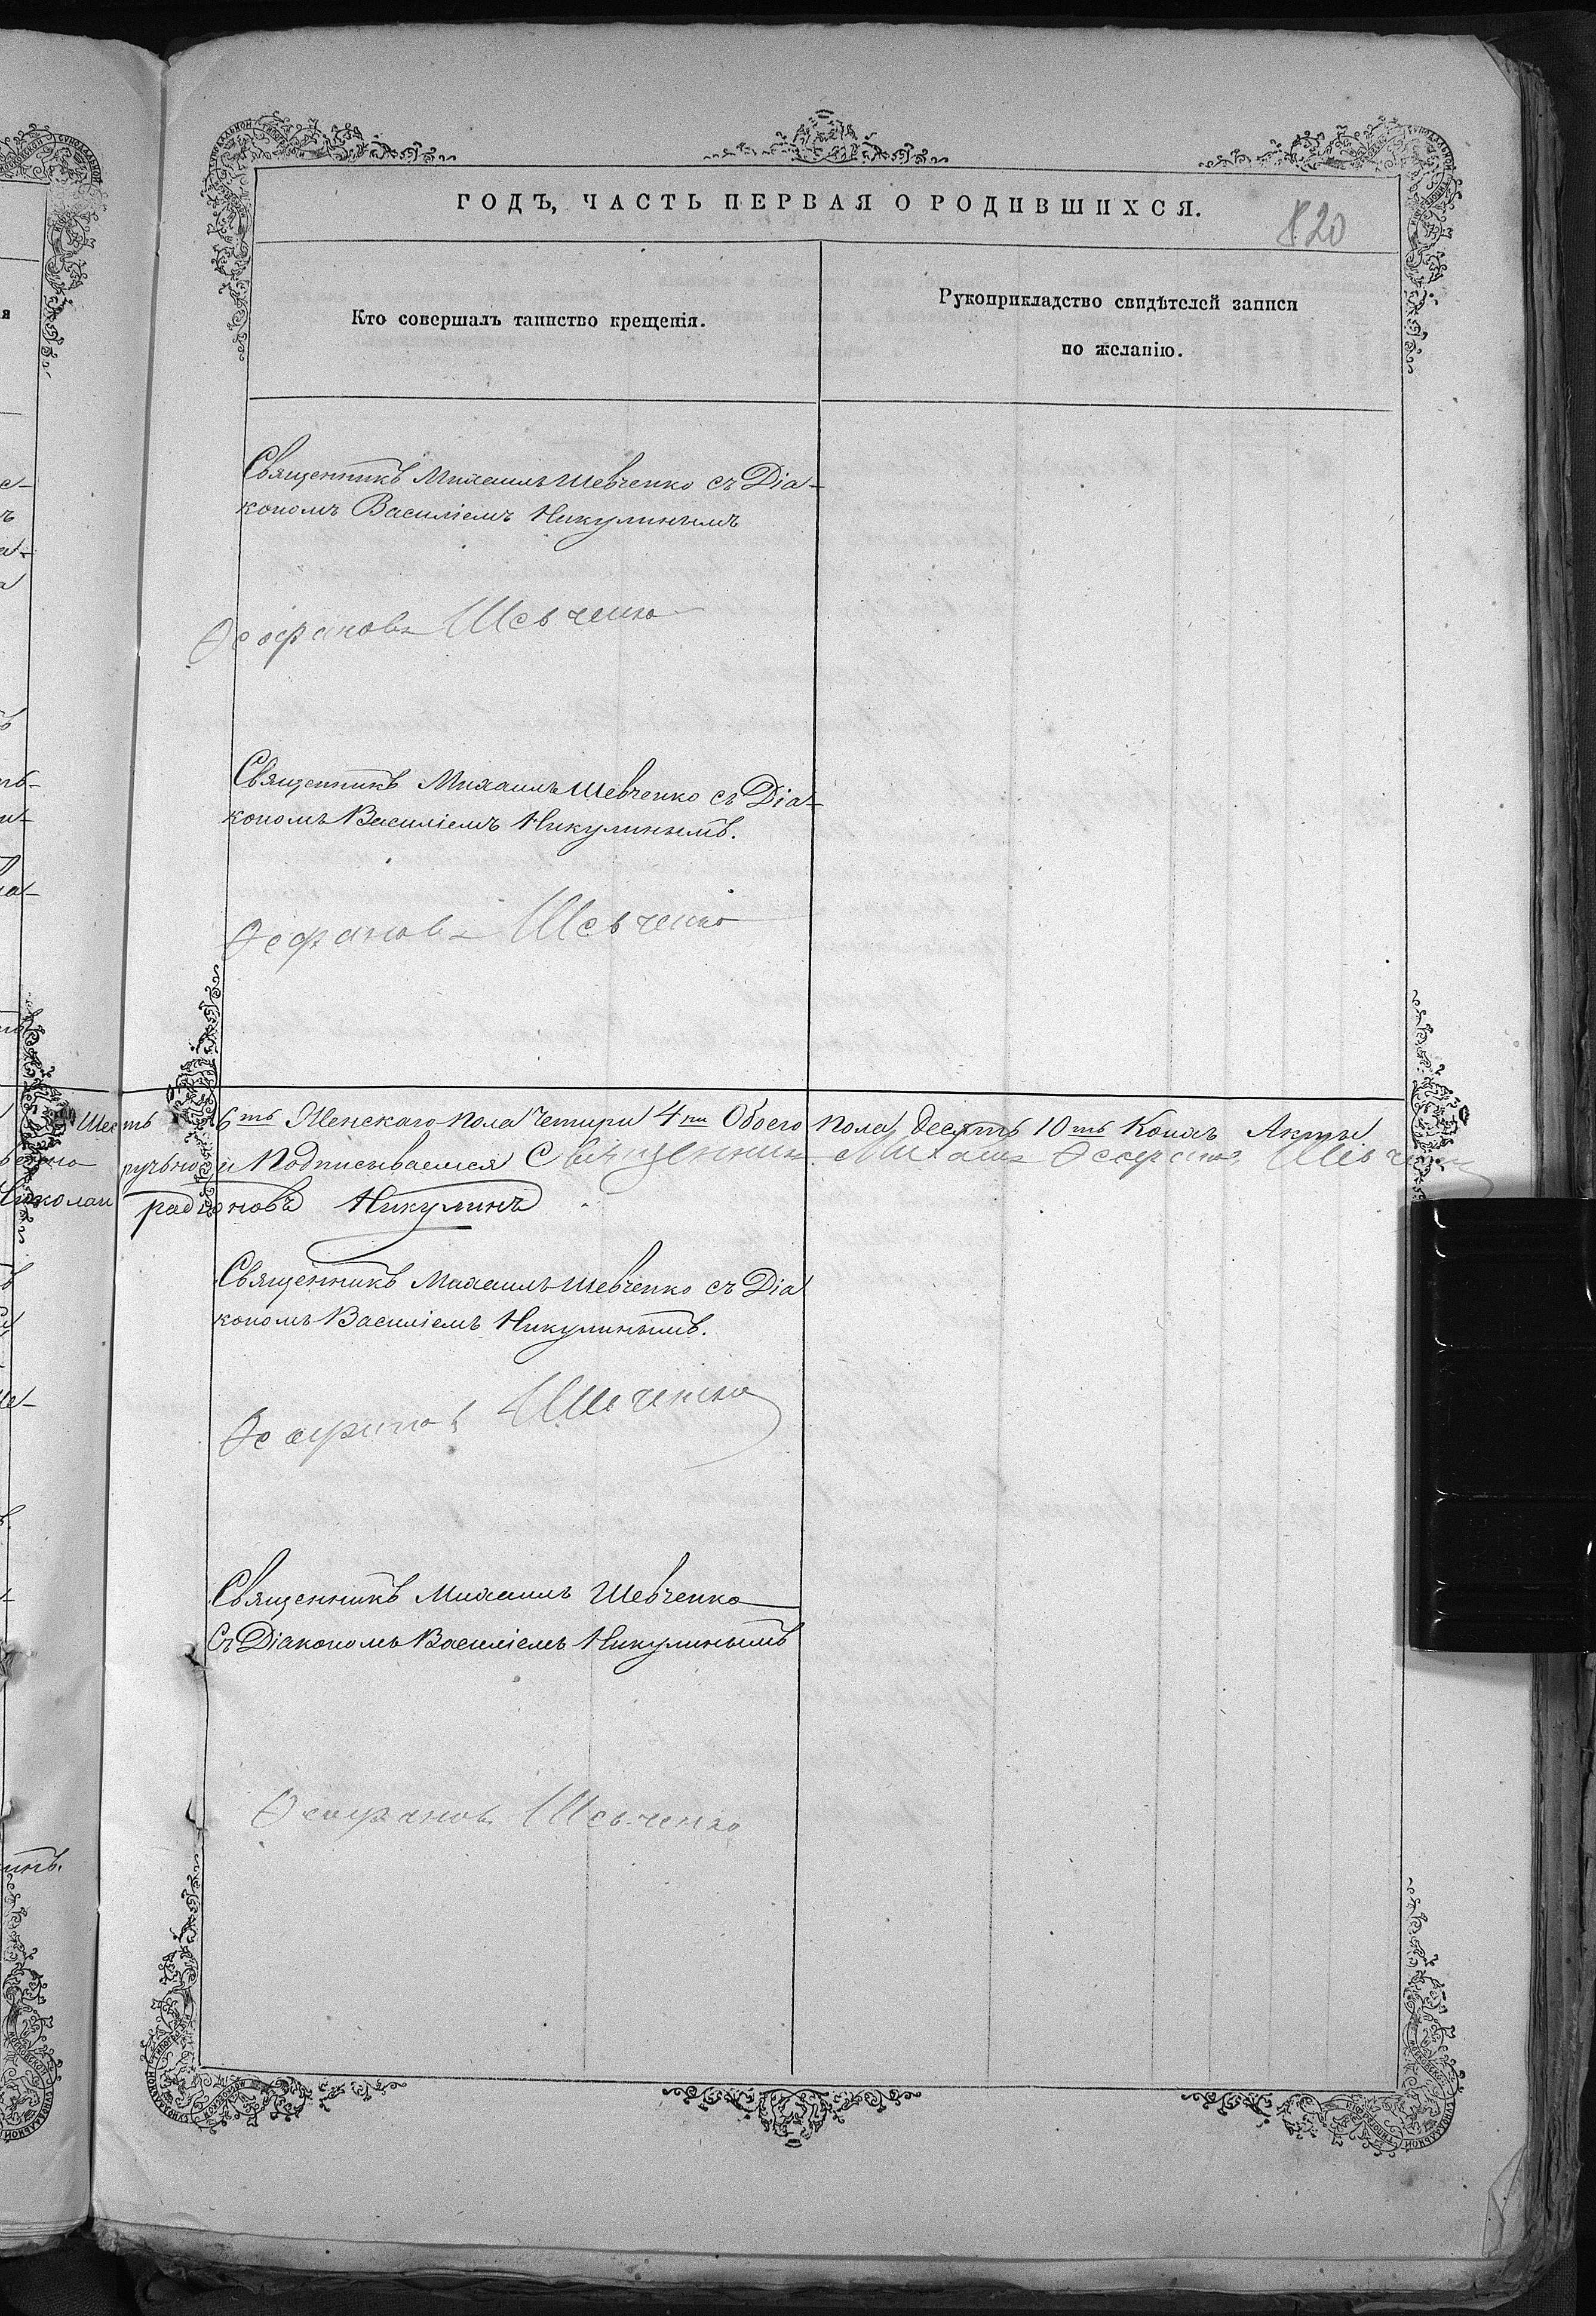 ГОДЪ, ЧАСТЬ ПЕРВАЯ О РОДИВШИХСЯ.
820
Кто совершалъ таинство крещенія.
Рукоприкладство свидѣтелей записи
по желанію.
Священникъ Михаилъ Шевченко съ Діа-
кономъ Василіемъ Никулинымъ
Ѳеофановъ Шевченко
Священникъ Михаилъ Шевченко съ Діа-
кономъ Василіемъ Никулинымъ.
Ѳеофановъ Шевченко
Шесть 6ть Женскаго пола Четыри 4ри Обоего пола десять 10ть Коихъ Акты
ручьно и Подписываемся Священникъ Михаилъ Ѳеофановъ Шевченко
Николай радіоновъ Никулинъ
Священникъ Михаилъ Шевченко съ Діа
кономъ Василіемъ Никулинымъ.
Ѳеофановъ Шевченко
Священникъ Михаилъ Шевченко
Съ Діакономъ Василіемъ Никулинымъ
Ѳеофановъ Шевченко